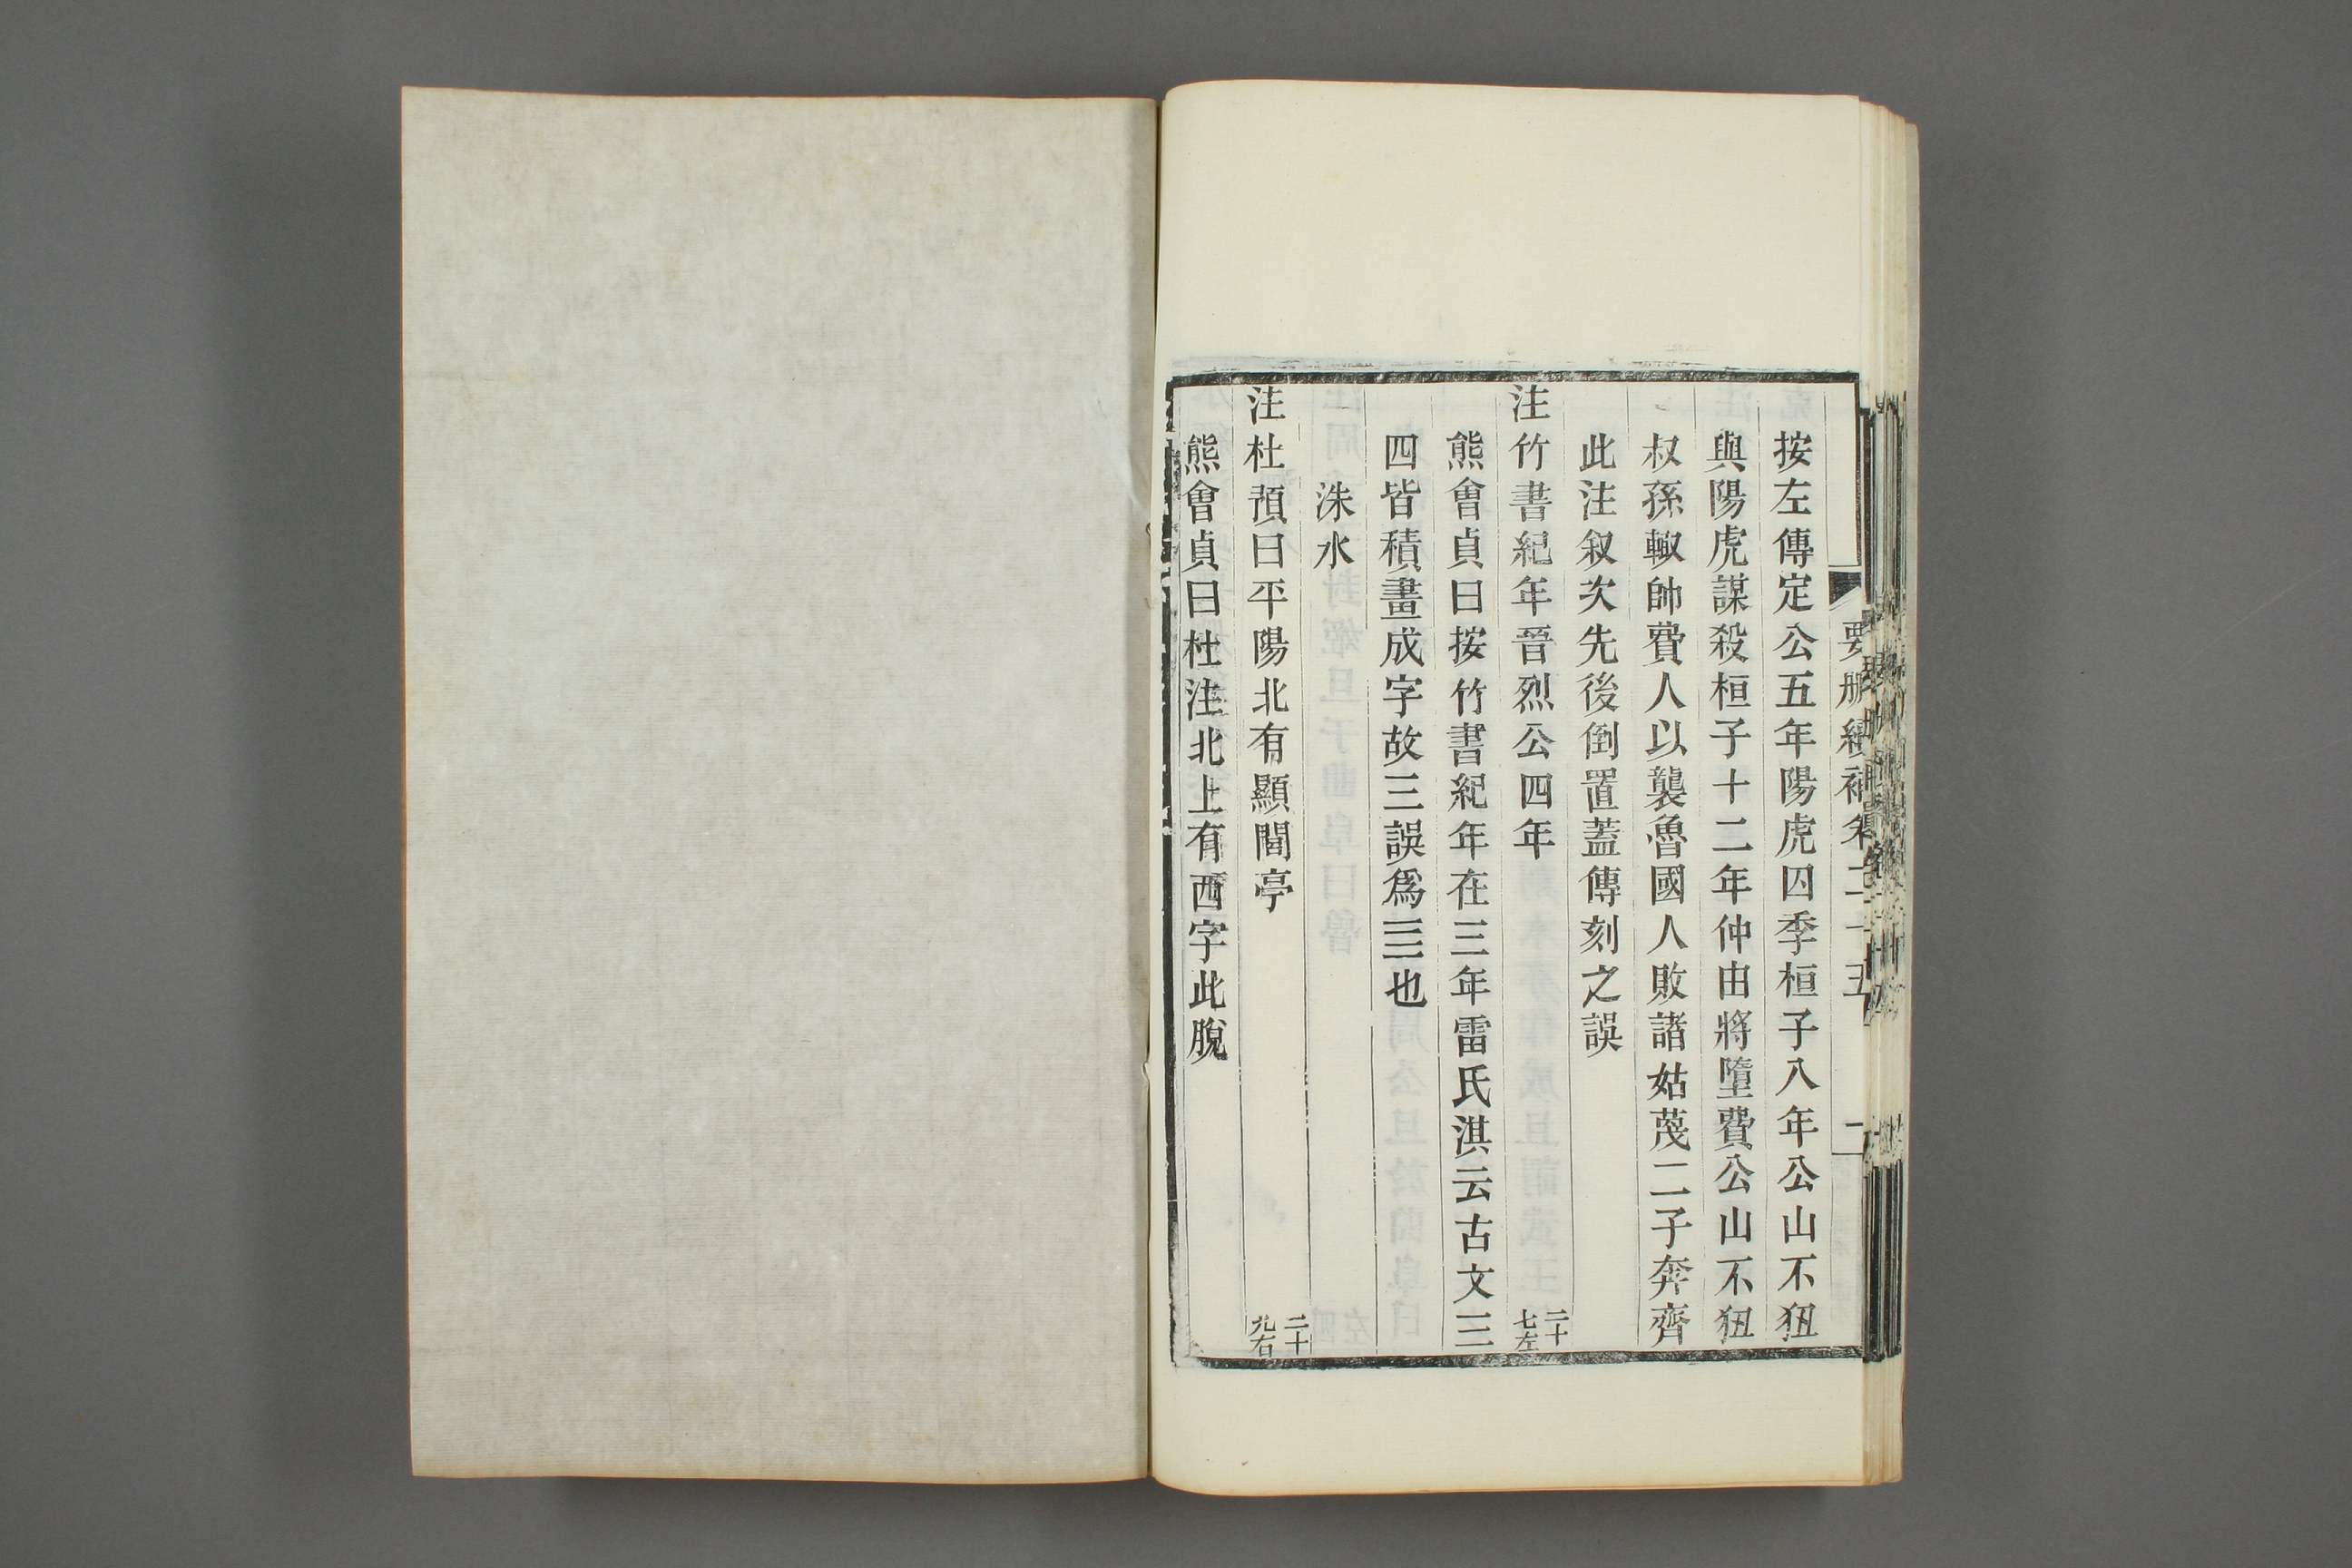 要刪續補卷二十五 二
按左傳定公五年陽虎囚季桓子八年公山不狃
與陽虎謀殺桓子十二年仲由將墮費公山不狃
叔孫輙帥費人以襲魯國人敗諸姑蔑二子奔齊
此注叙次先後倒置蓋傳刻之誤
注竹書紀年晉烈公四年 二十七左
熊會貞曰按竹書紀年在三年雷氏淇云古文三
四皆積畫成字故三誤爲亖也
洙水
注杜預曰平陽北有顯閭亭 二十九右
熊會貞曰杜注北上有西字此脫